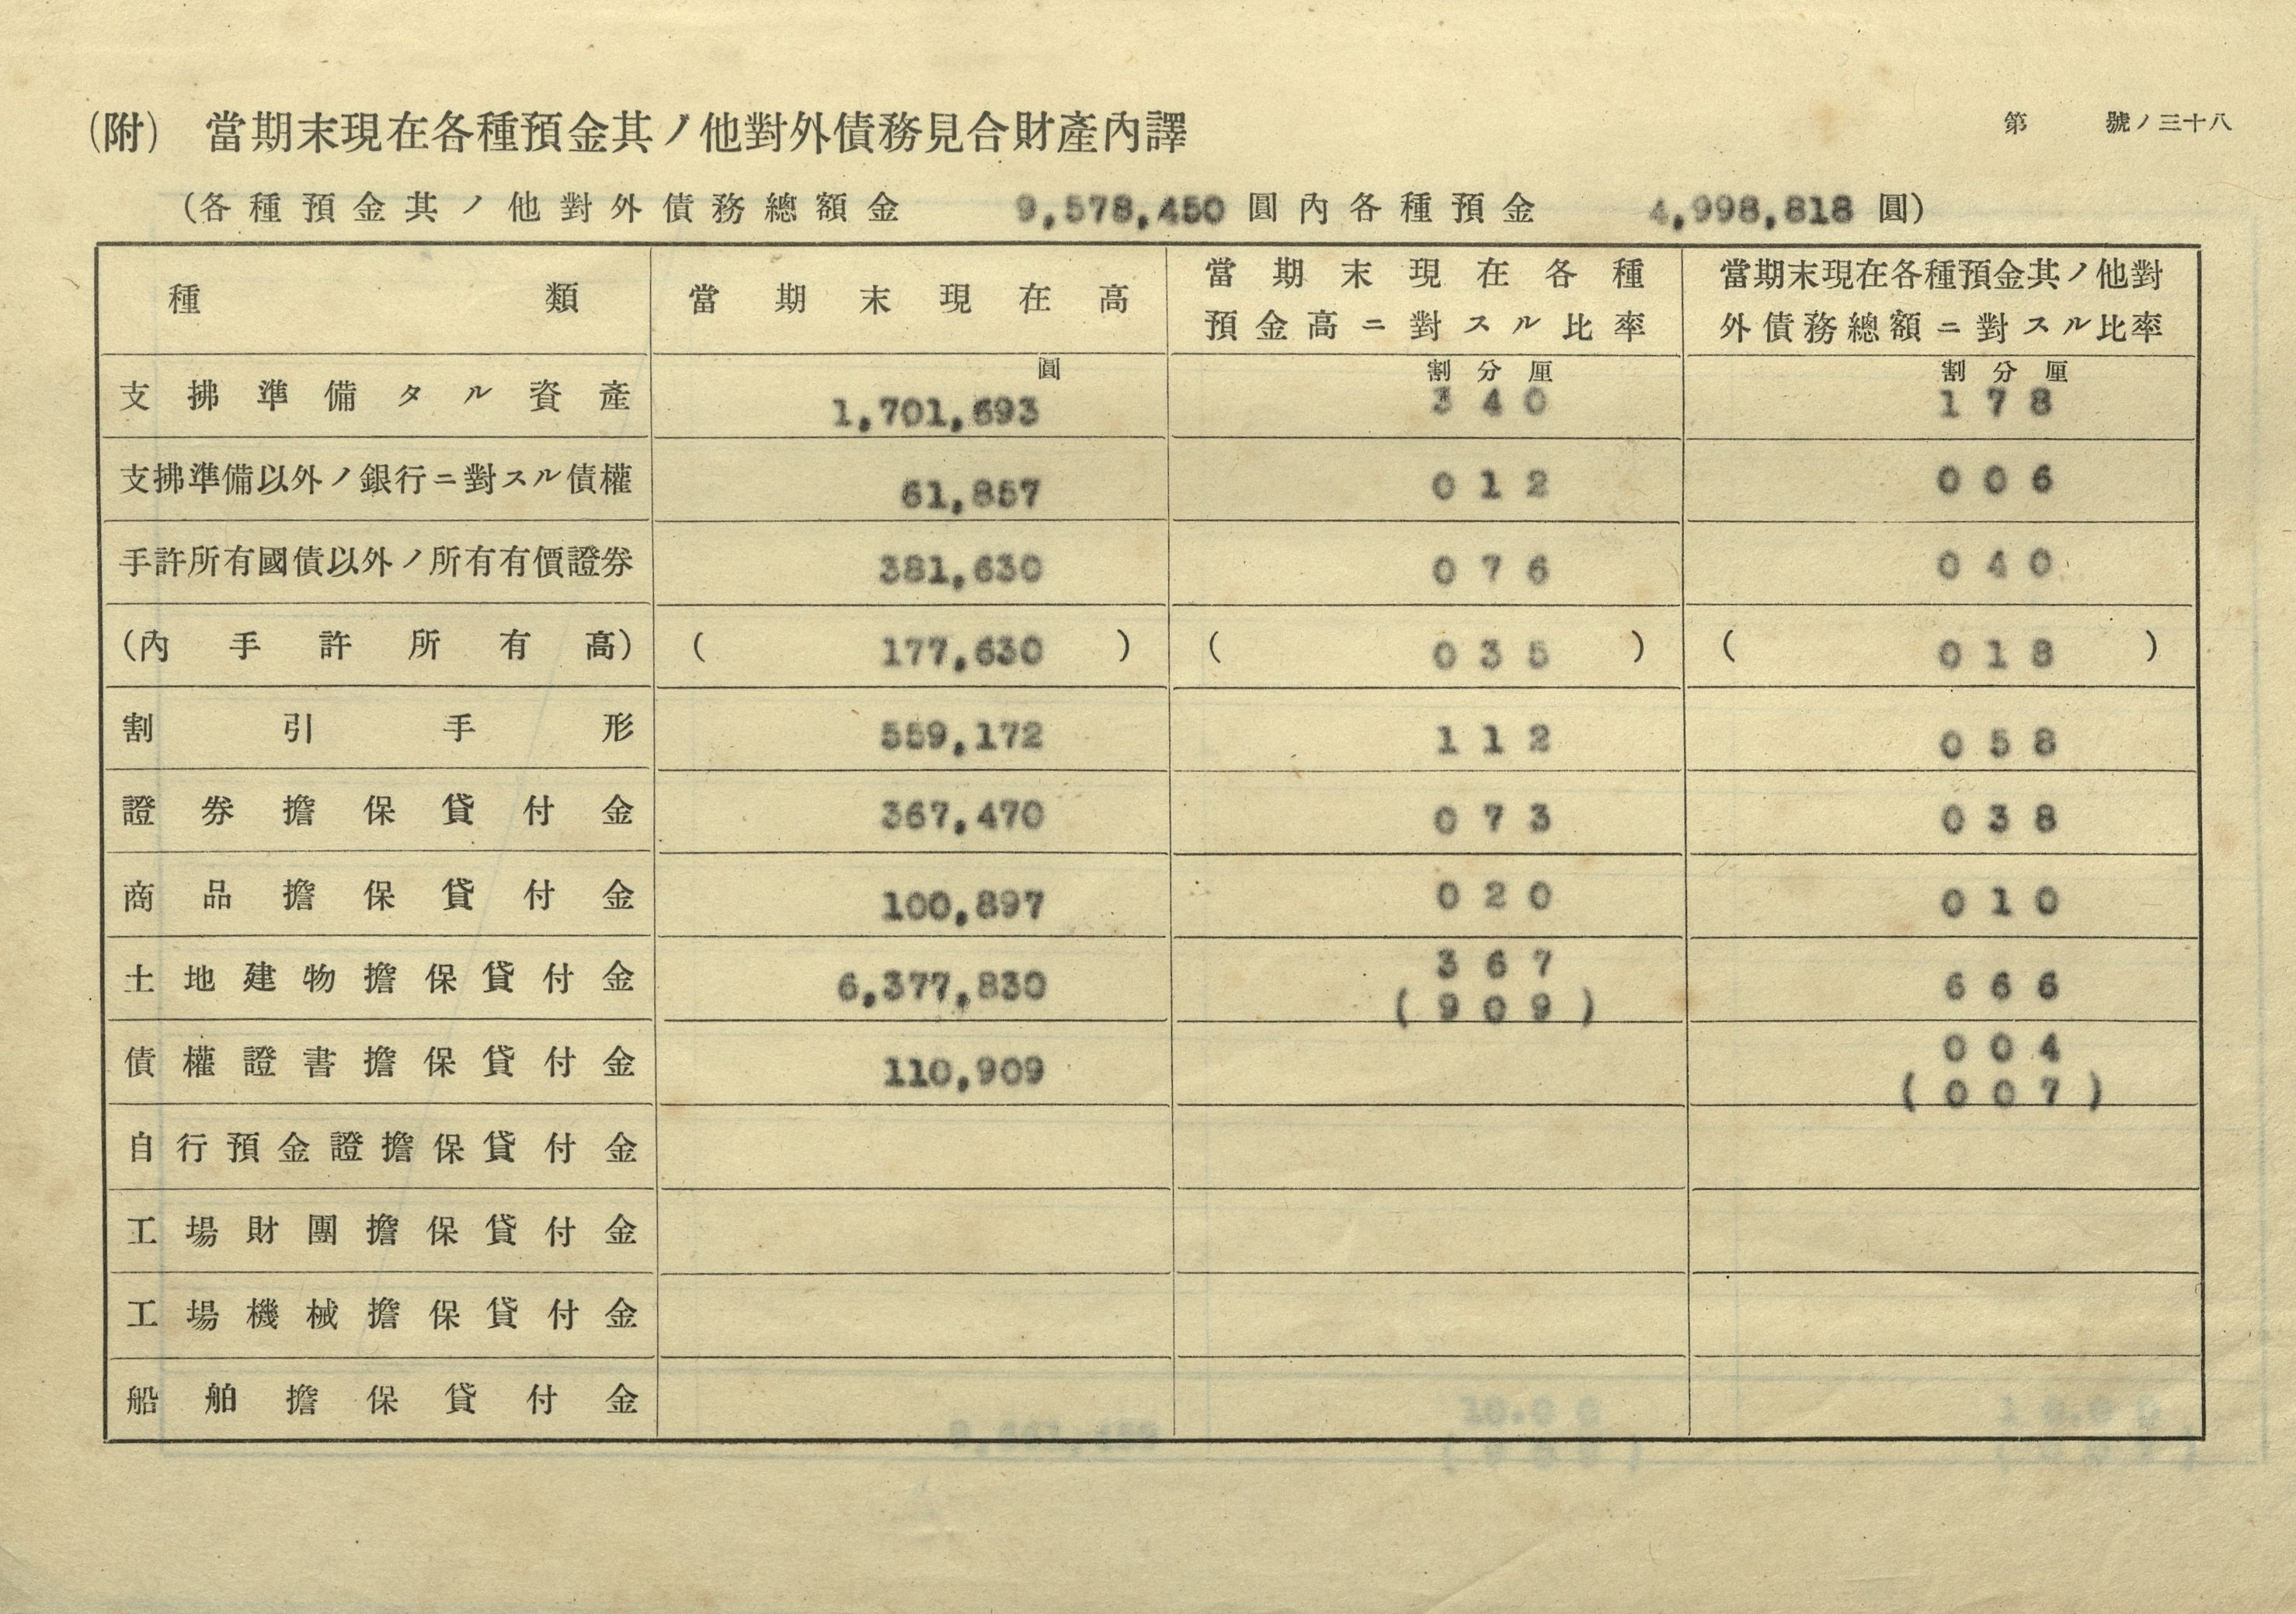 第 號ノ三十八
(附) 當期末現在各種預金其ノ他對外債務見合財產內譯
(各種預金其ノ他對外債務總額金 9,578,450 圓內各種預金 4,998,818 圓)
種類 當期末現在高 當期末現在各種 當期末現在各種預金其ノ他對
預金高ニ對スル比率 外債務總額ニ對スル比率
圓 割分厘 割分厘
支拂準備タル資產 1,701,693 3 4 0 1 7 8
支拂準備以外ノ銀行ニ對スル債權 61,857 0 1 2 0 0 6
手許所有國債以外ノ所有有價證券 381,630 0 7 6 0 4 0
(內手許所有高) ( 177,630 ) ( 0 3 5 ) ( 0 1 8 )
割引手形 559,172 1 1 2 0 5 8
證券擔保貸付金 367,470 0 7 3 0 3 8
商品擔保貸付金 100,897 0 2 0 0 1 0
土地建物擔保貸付金 6,377,830 3 6 7 6 6 6
( 9 0 9 )
債權證書擔保貸付金 110,909 0 0 4
( 0 0 7 )
自行預金證擔保貸付金
工場財團擔保貸付金
工場機械擔保貸付金
船舶擔保貸付金